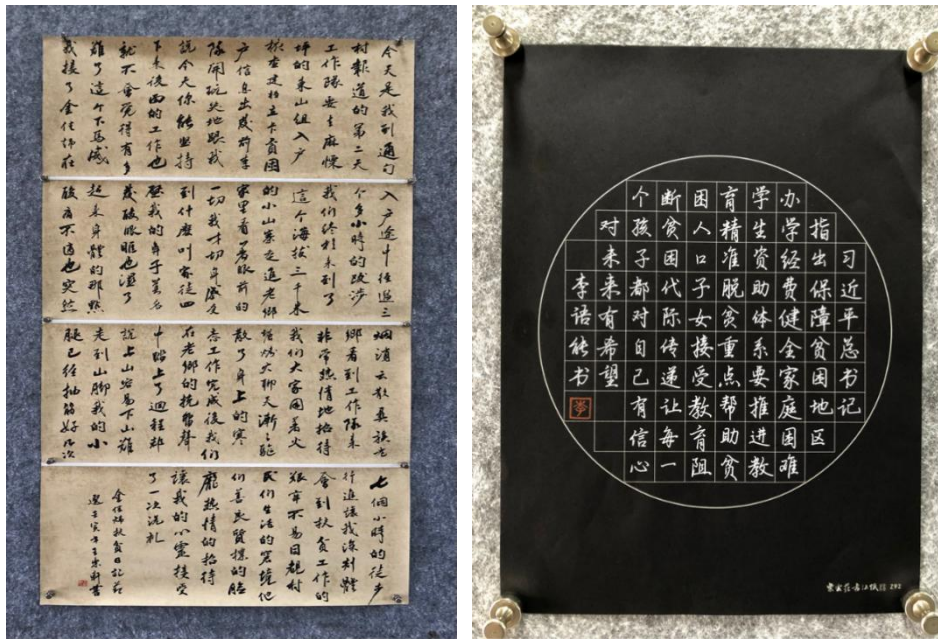 今天是我到通勾
村報道的第二天
工作隊要去麻慄
坪的東山组入户
核查建档立卡貧困
户信息出發前李
隊開玩笑地跟我
説今天你能坚持
下来後面的工作也
就不會覺得有多
難了這个下馬威
我接了金佳炜莊
入户途中经過三
个多小時的跋涉
我們终於来到了
這个海拔三千米
的小山寨走進老鄉
家里看着眼前的
一切我才切身感受
到什麽叫家徒四
壁我的鼻子莫名
發酸眼眶也濕了
起来身體的那點
酸痛不適也突然
烟消云散彝族老
鄉看到工作隊来
非常熱情地招待
我們大家围着火
塘烤火聊天漸漸驱
散了身上的寒
意工作完成後我們
在老鄉的挽留聲
中踏上了回程都
説上山容易下山難
走到山脚我的小
腿已经抽筋好几次
七個小時的徒步
行進讓我深刻體
會到扶貧工作的
艱辛不易目覩村
民们生活的窘境他
们善良質樸的臉
龐熱情的招待
讓我的心靈接受
了一次洗礼
金佳炜扶貧日記節
選壬寅年王東新書
习近平总书记
指出保障贫困地区
办学经费健全家庭困难
学生资助体系要推进教
育精准脱贫重点帮助贫
困人口子女接受教育阻
断贫困代际传递让每一
个孩子都对自己有信心
对未来有希望
李语能书